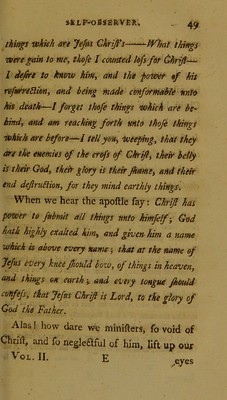 SELF-OBSERVER. 49
things which are Jesus Christ's——What things
were gain to me, those I counted loss for Christ—
I desire to know him, and the power of his
resurrection, and being made conformable unto
his death—I forget those things which are be-
hind, and am reaching forth unto those things
which are before—I tell you, weeping, that they
are the enemies of the cross of Christ, their belly
is their God, their glory is their shame, and their
end destruction, for they mind earthly things.
When we hear the apostle say: Christ has
power to submit all things unto himself; God
hath highly exalted him, and given him a name
which is above every name; that at the name of
Jesus every knee should bow, of things in heaven,
and things on earth; and every tongue should
confess, that Jesus Christ is Lord, to the glory of
God the Father.
Alas! how dare we ministers, so void of
Christ, and so neglectful of him, lift up our
VOL. II. E eyes